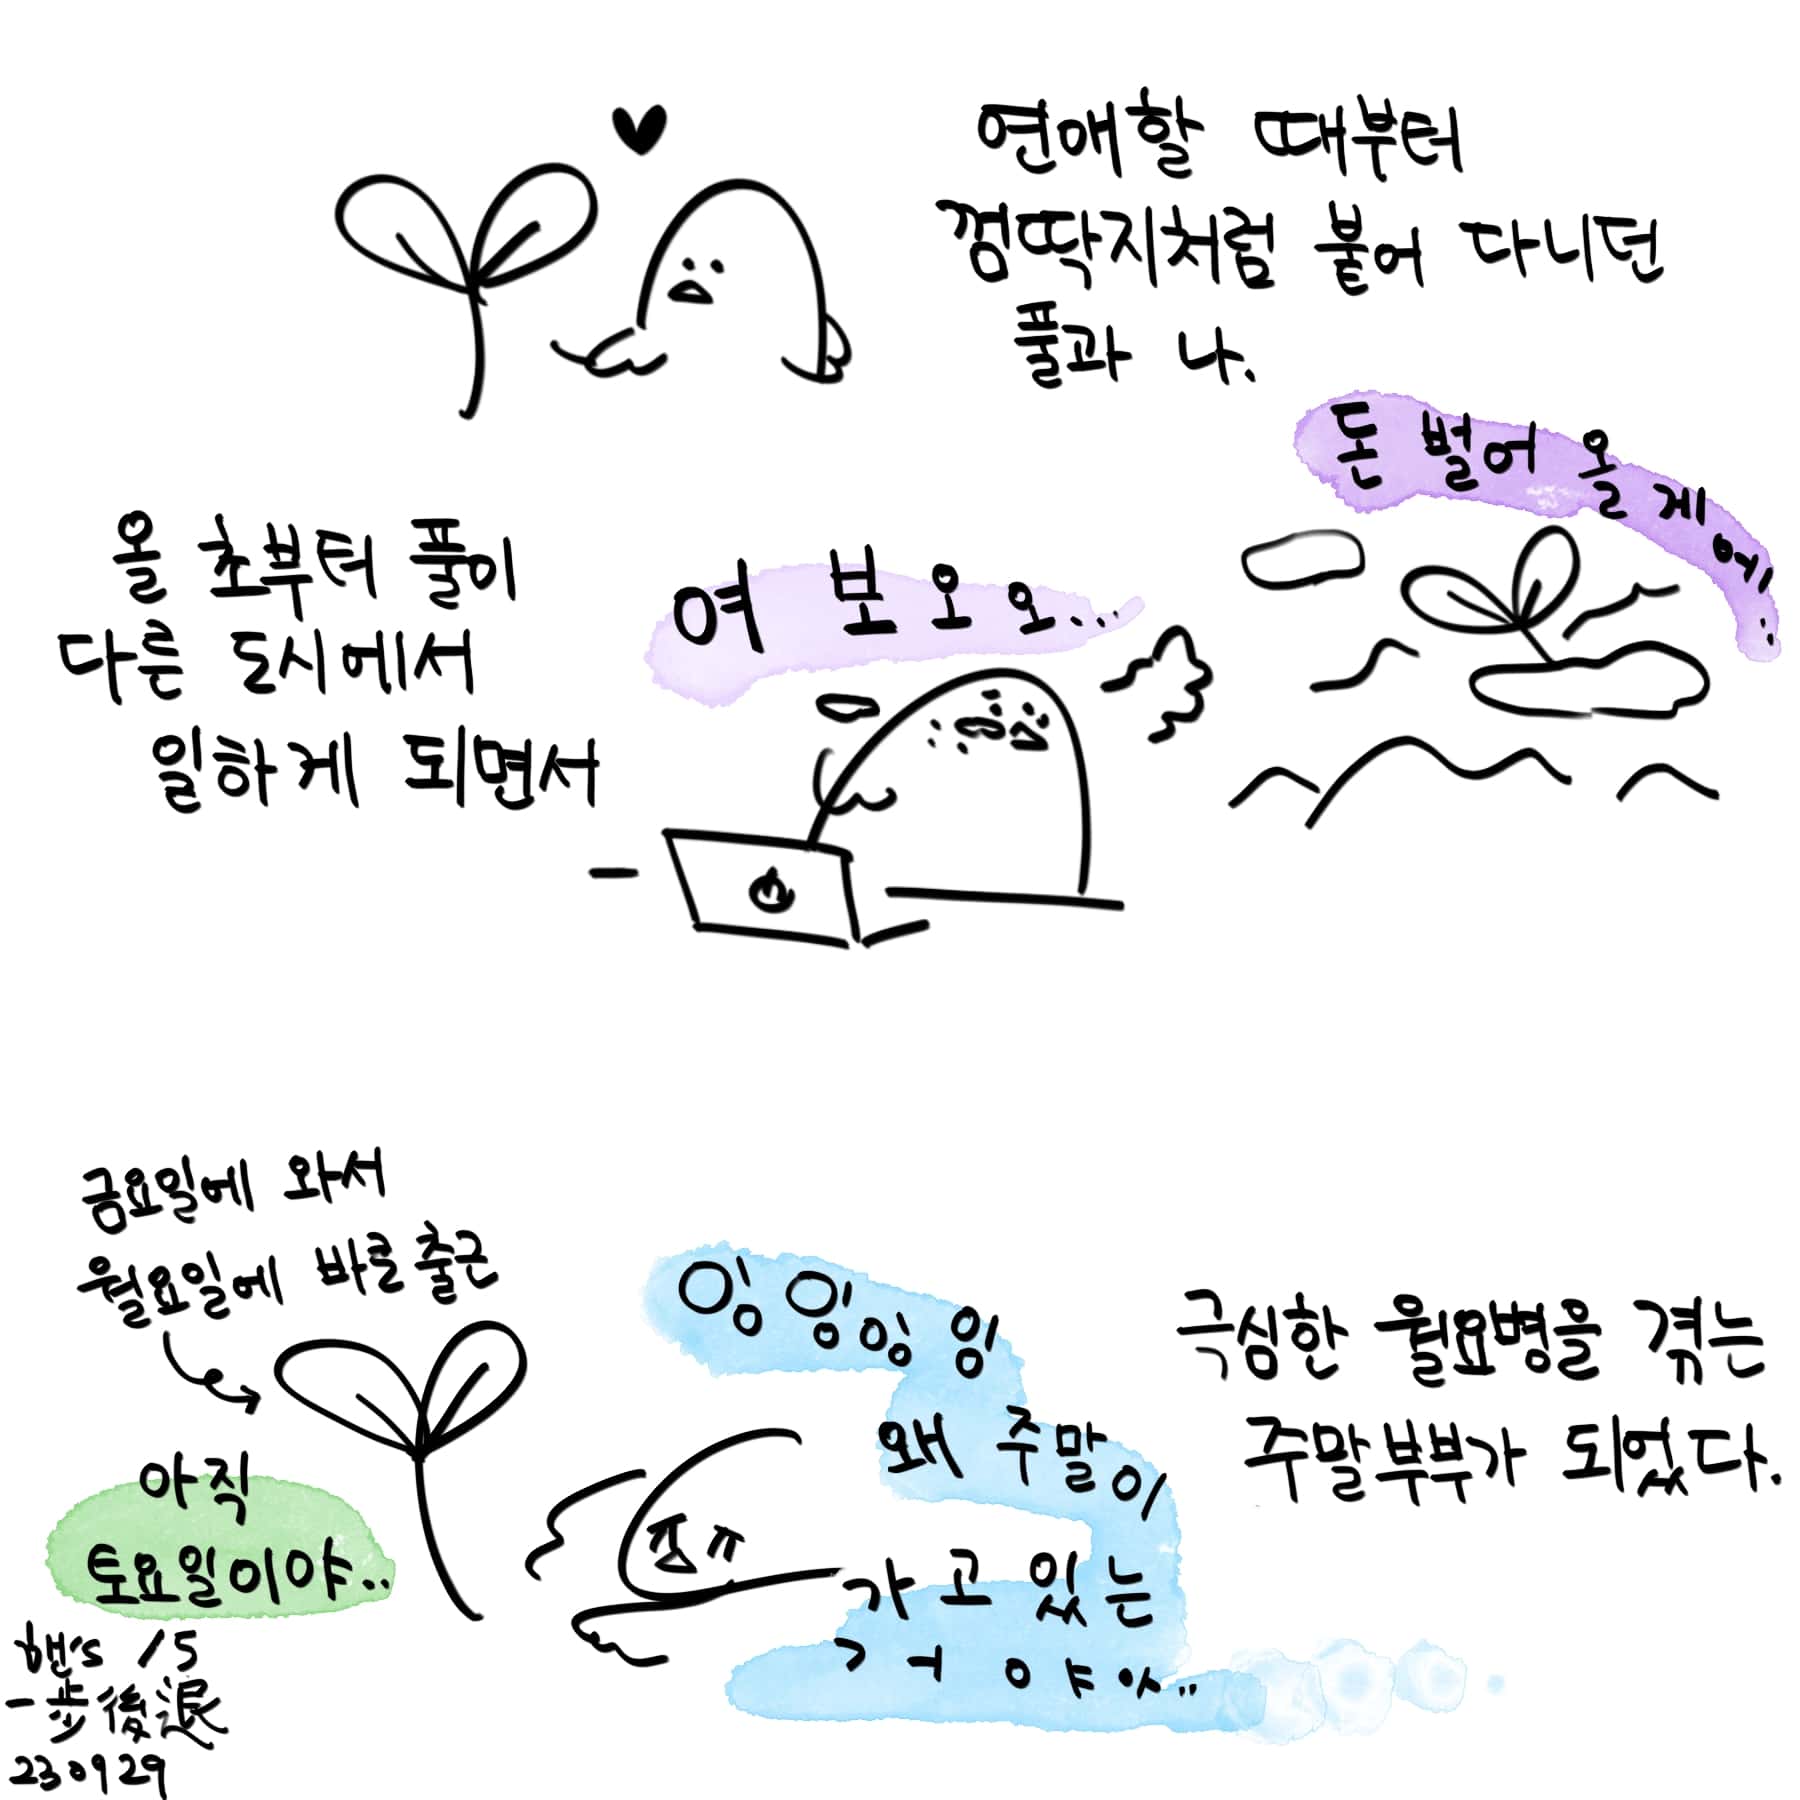 연애할 때부터
껌딱지처럼 붙어 다니던
풀과 나.
돈 벌어 올게에..
올 초부터 풀이
다른 도시에서
일하게 되면서
여보오오...
금요일에 와서
월요일에 바로 출근
잉잉잉잉
왜 주말이
가고 있는
거야아..
극심한 월요병을 겪는
주말부부가 되었다.
아직
토요일이야..
핸's /5
一步後退
230929